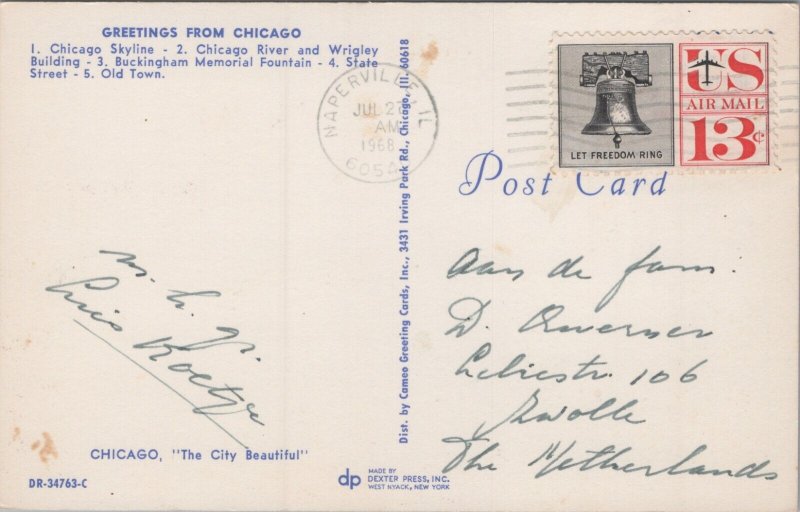 GREETINGS FROM CHICAGO
1. Chicago Skyline - 2. Chicago River and Wrigley
Building - 3. Buckingham Memorial Fountain - 4. State
Street - 5. Old Town.
NAPERVILLE, IL
JUL 27
AM
1968
6054
LET FREEDOM RING
US
AIR MAIL
13¢
Post Card
Dist. by Cameo Greeting Cards, Inc., 3431 Irving Park Rd., Chicago, Ill. 60618
Aan de fam.
D.
Leliestr. 106
Zwolle
The Netherlands
m. h. g.
CHICAGO, "The City Beautiful"
DR-34763-C
dp
MADE BY
DEXTER PRESS, INC.
WEST NYACK, NEW YORK